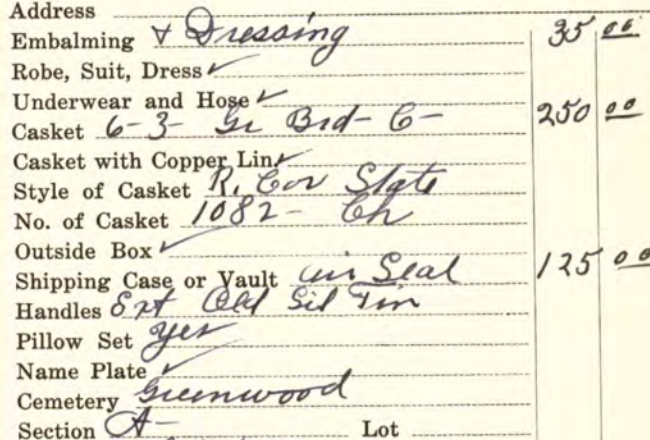 Address
Embalming & Dressing 35 00
Robe, Suit, Dress ✓
Underwear and Hose ✓
Casket 6-3- Gr Brd- C- 250 00
Casket with Copper Lin ✓
Style of Casket R. Cor State
No. of Casket 1082- Ch
Outside Box ✓
Shipping Case or Vault air Seal 125 00
Handles Ext Old Sil Fin
Pillow Set yes
Name Plate ✓
Cemetery Greenwood
Section A- Lot